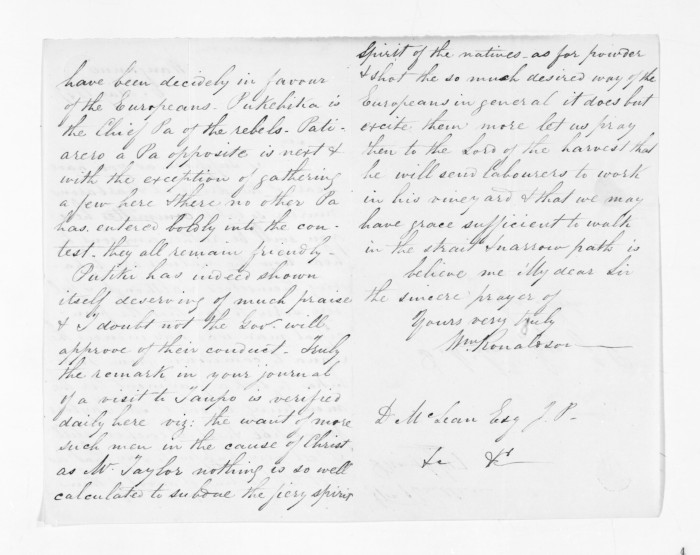 have been decidely in favour
of the Europeans. Pukehika is
the Chief Pa of the rebels. Pati-
arero a Pa opposite is next &
with the exception of gathering
a few here & there no other Pa
has entered boldly into the con-
test. they all remain friendly.
Putiki has indeed shown
itself deserving of much praise
& I doubt not the Gov. will
approve of their conduct. Truly
the remark in your journal
of a visit to Taupo is verified
daily here viz: the want of more
such men in the cause of Christ
as Mr. Taylor nothing is so well
calculated to subdue the fiery spirit
Spirit of the natives - as for powder
& shot the so much desired way of the
Europeans in general it does but
excite them more let us pray
then to the Lord of the harvest that
he will send labourers to work
in his vineyard & that we may
have grace sufficient to walk
in the strait & narrow path is
believe me My dear Sir
the sincere prayer of
Yours very truly
Wm Ronaldson
D McLean Esq J. P.
&c &c